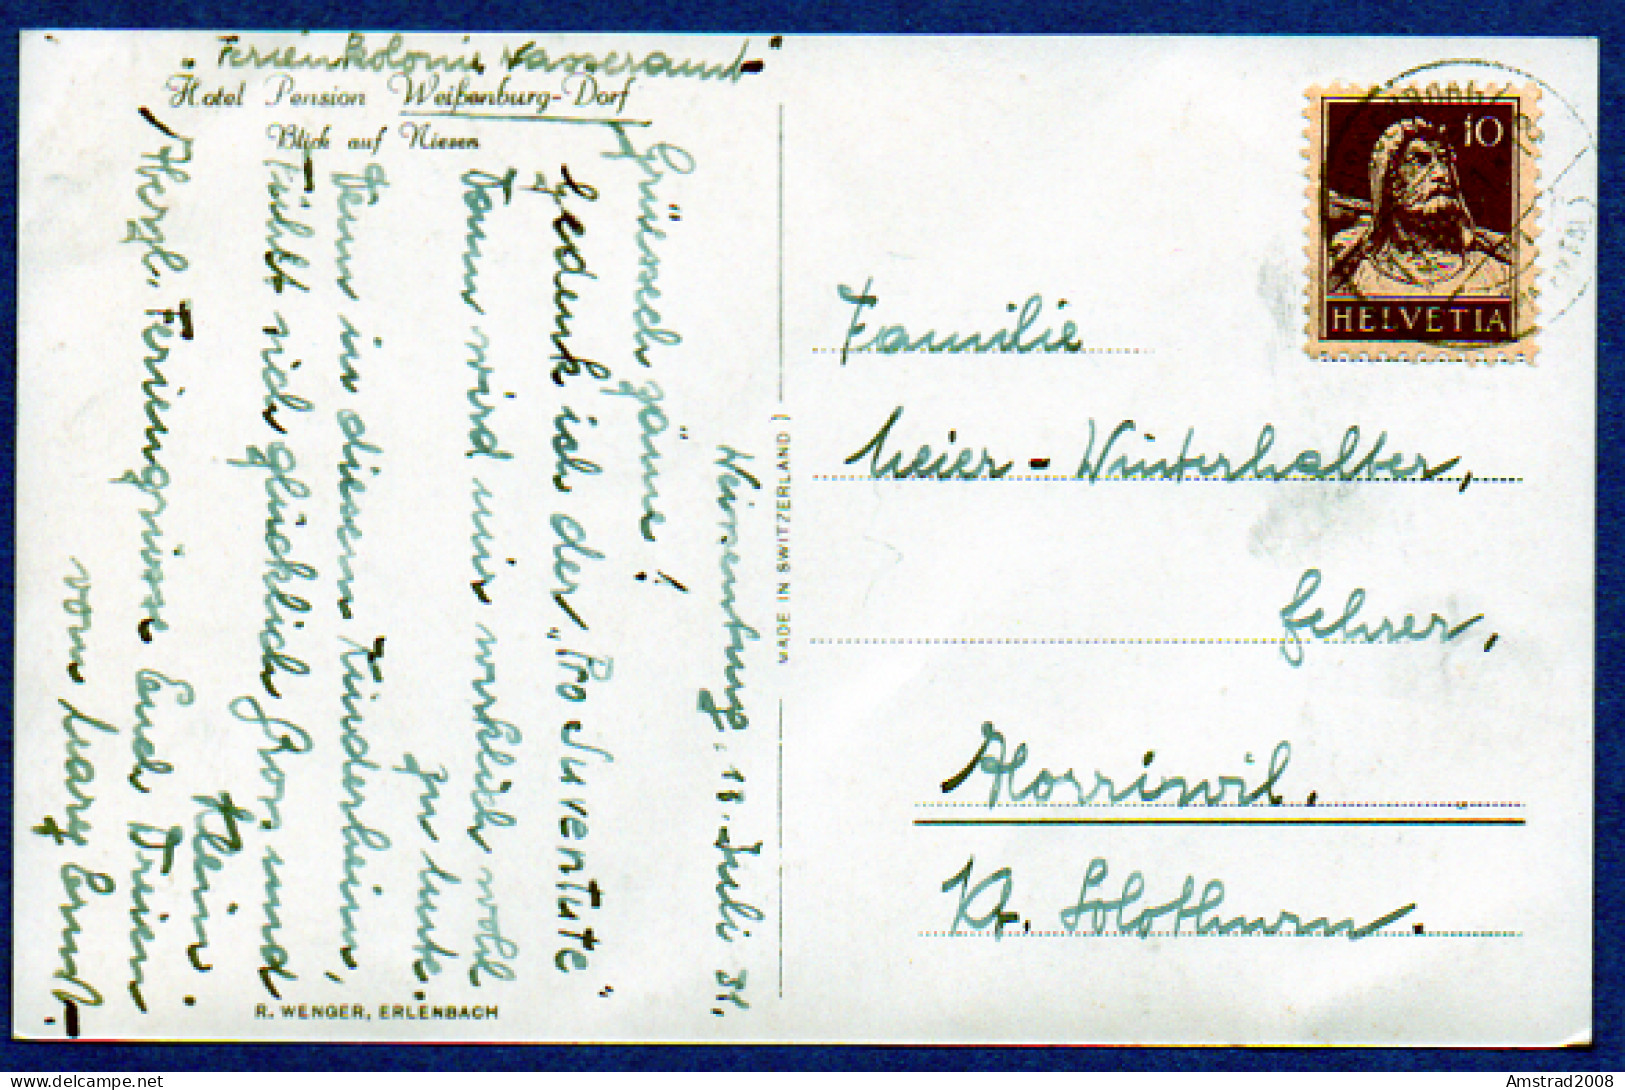 "Ferienkolonie Wasseramt"
Hotel Pension Weißenburg-Dorf
Blick auf Niesen
Weissenburg, 18. Juli 31.
Grüessech zäme!
Gedenk ich der „Pro Juventute"
Dann wird mir wirklich wohl
zu Mute.
Denn in diesem Kinderheim,
Fühlt sich glücklich Gross und
Klein.
Herzl. Feriengrüsse Euch Dreien
vom Mary Ernst.
R. WENGER, ERLENBACH
MADE IN SWITZERLAND
10
HELVETIA
Familie
Meier-Winterhalter,
Lehrer,
Horriwil.
Kt. Solothurn.
Amstrad2008